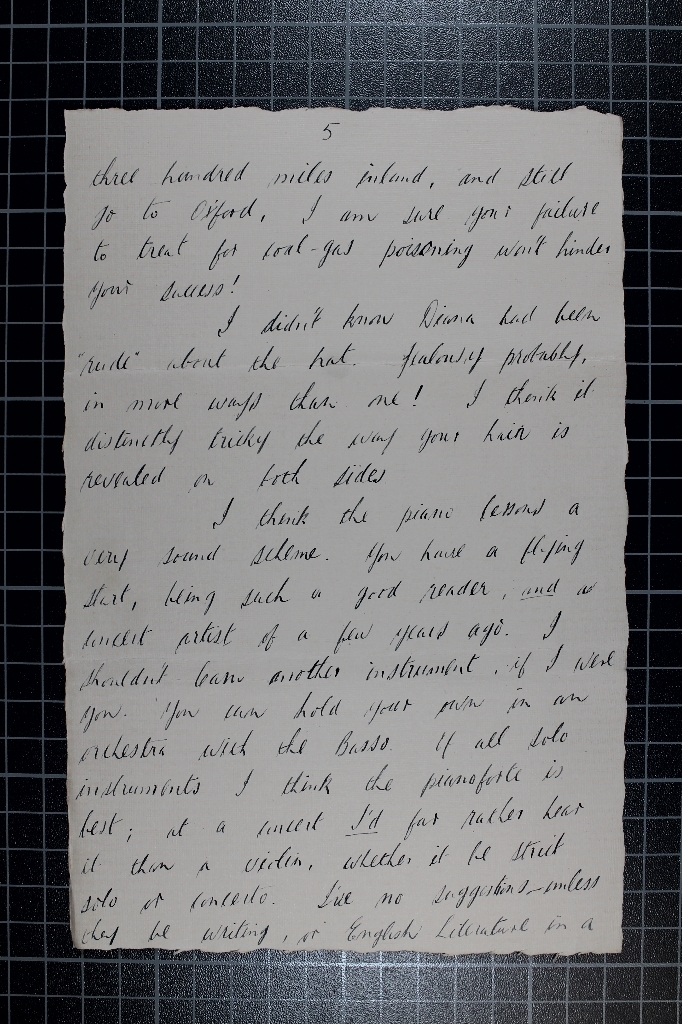 5
three hundred miles inland, and still
go to Oxford, I am sure your failure
to treat for coal-gas poisoning won't hinder
your success!
I didn't know Diana had been
"rude" about the hat. Jealousy probably,
in more ways than one! I think it
distinctly tricky the way your hair is
revealed on both sides
I think the piano lessons a
very sound scheme. You have a flying
start, being such a good reader, and a
concert artist of a few years ago. I
shouldn't learn another instrument, if I were
you. You can hold your own in an
orchestra with the Basso. Of all solo
instruments I think the pianoforte is
best; at a concert I'd far rather hear
it than a violin, whether it be strict
solo or concerto. I've no suggestions—unless
they be writing, or English Literature in a